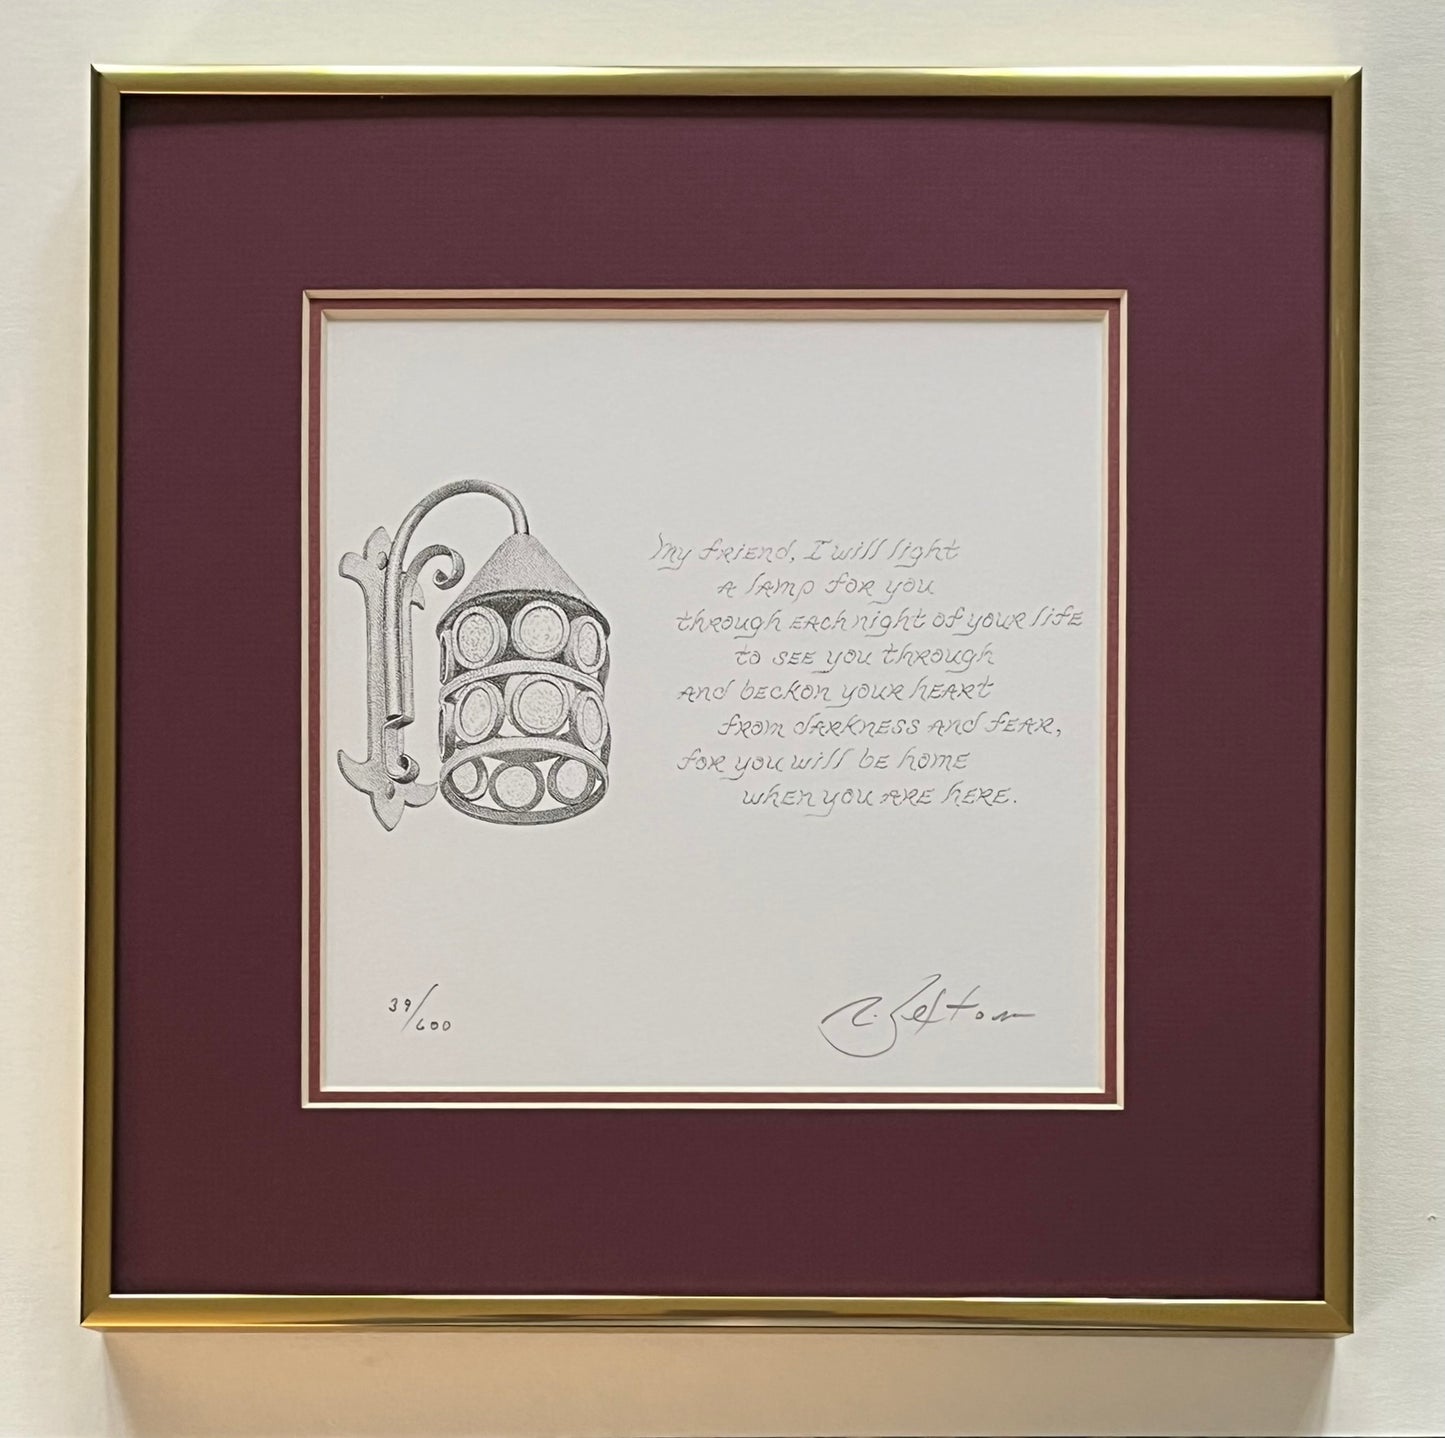 My friend, I will light
a lamp for you
through each night of your life
to see you through
and beckon your heart
from darkness and fear,
for you will be home
when you are here.
39/600